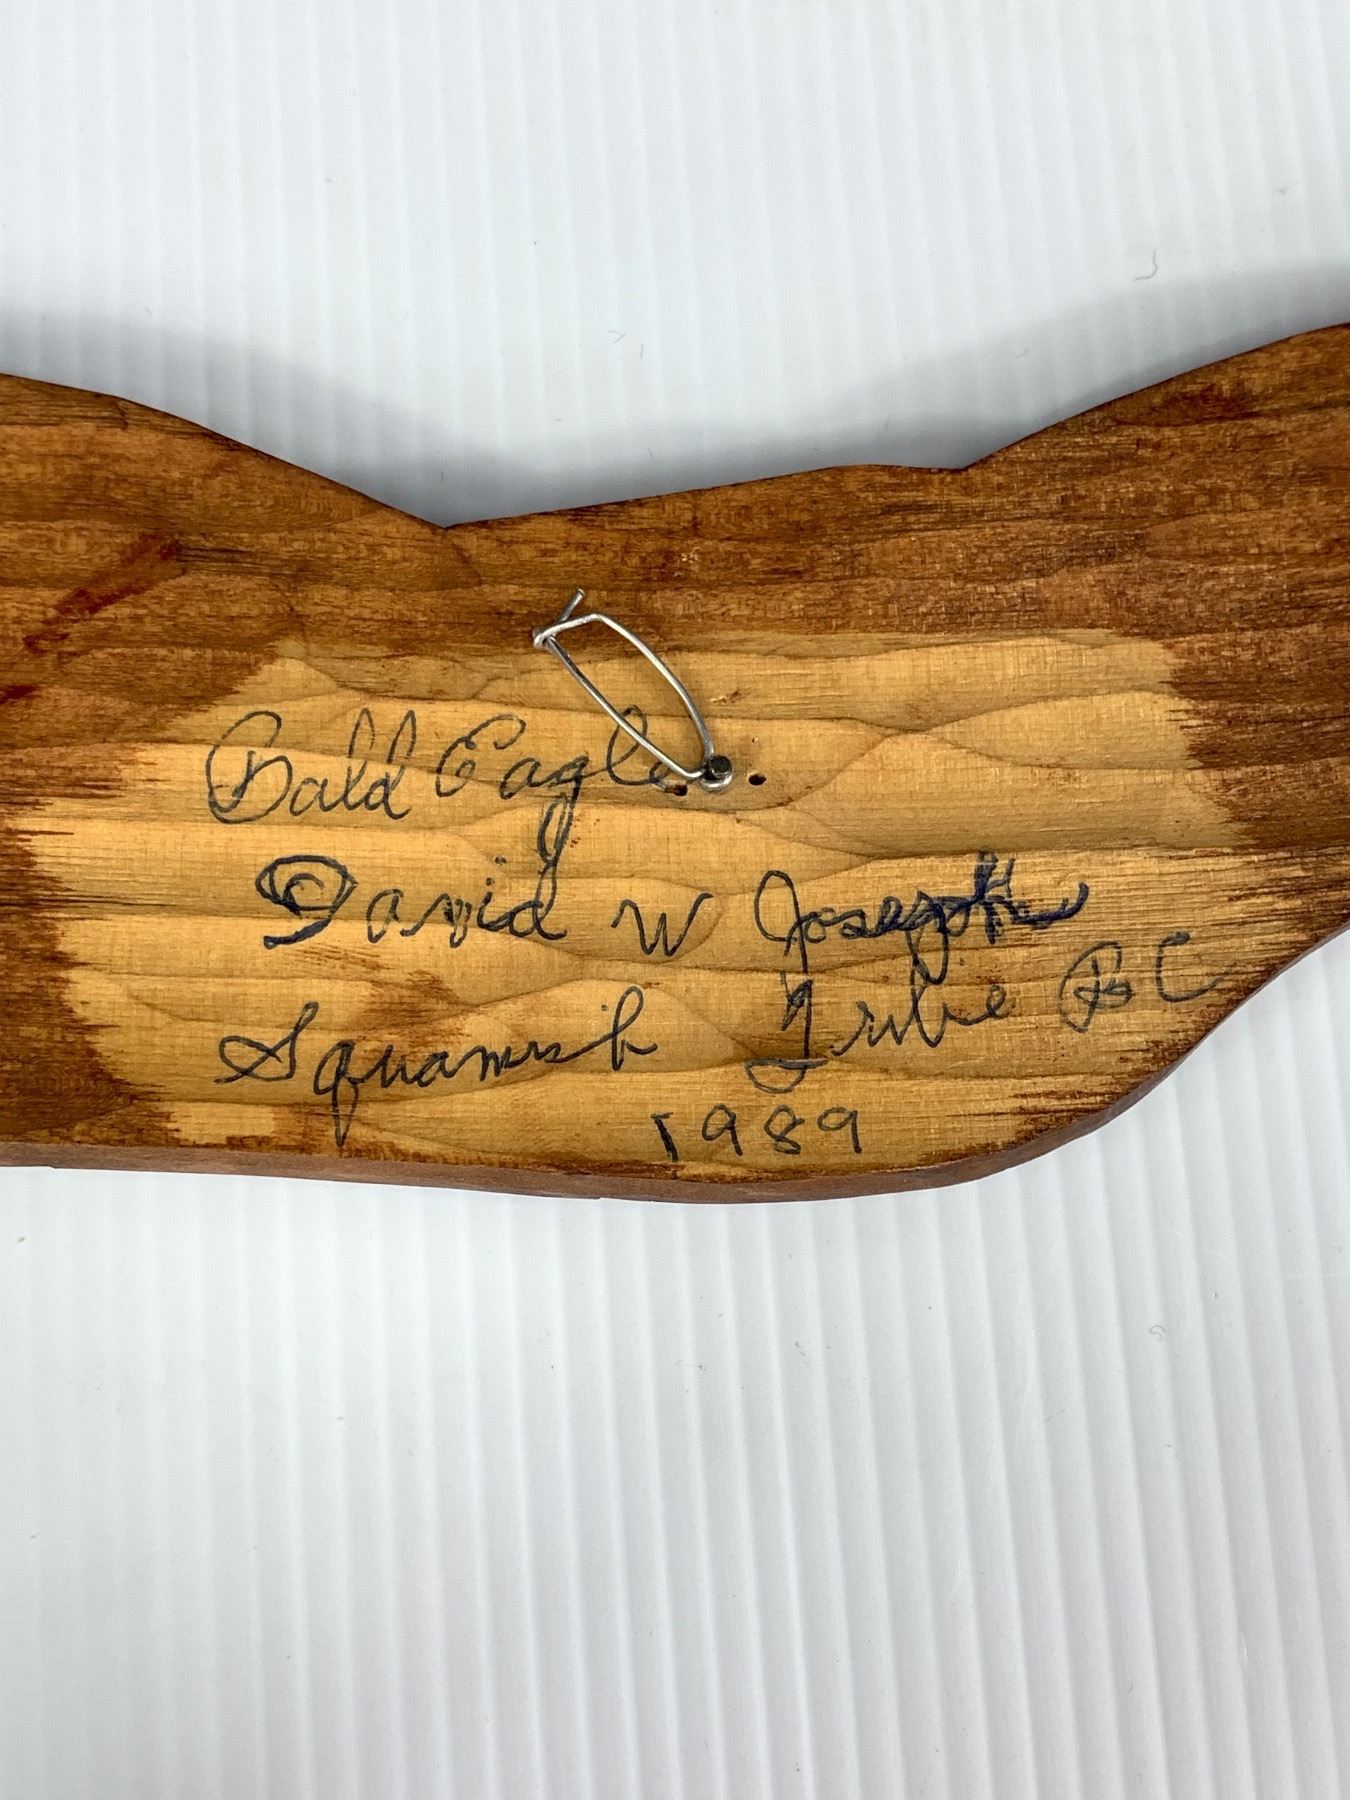 Bald Eagle
David W Joseph
Squamish Tribe BC
1989